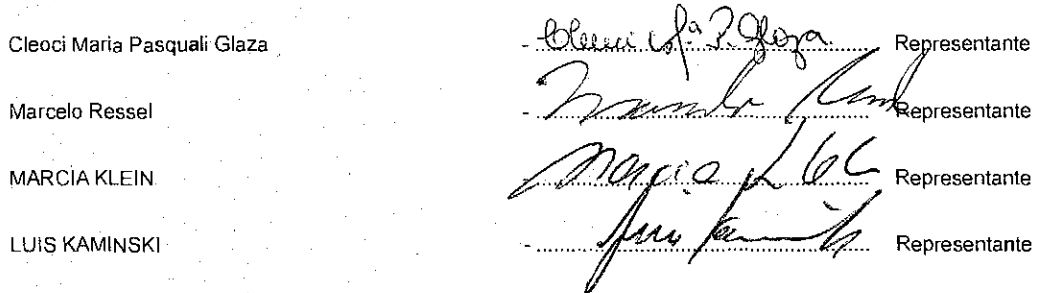 Cleoci Maria Pasquali Glaza - Cleoci Mª P. Glaza Representante
Marcelo Ressel - Representante
MARCIA KLEIN - Marcia Representante
LUIS KAMINSKI - Representante